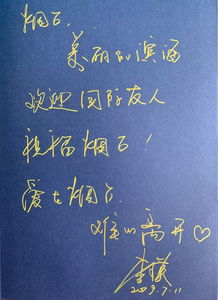 烟台,
美丽的滨海
欢迎国际友人
祝福烟台!
爱在烟台
难以离开♡
李
2009.7.11